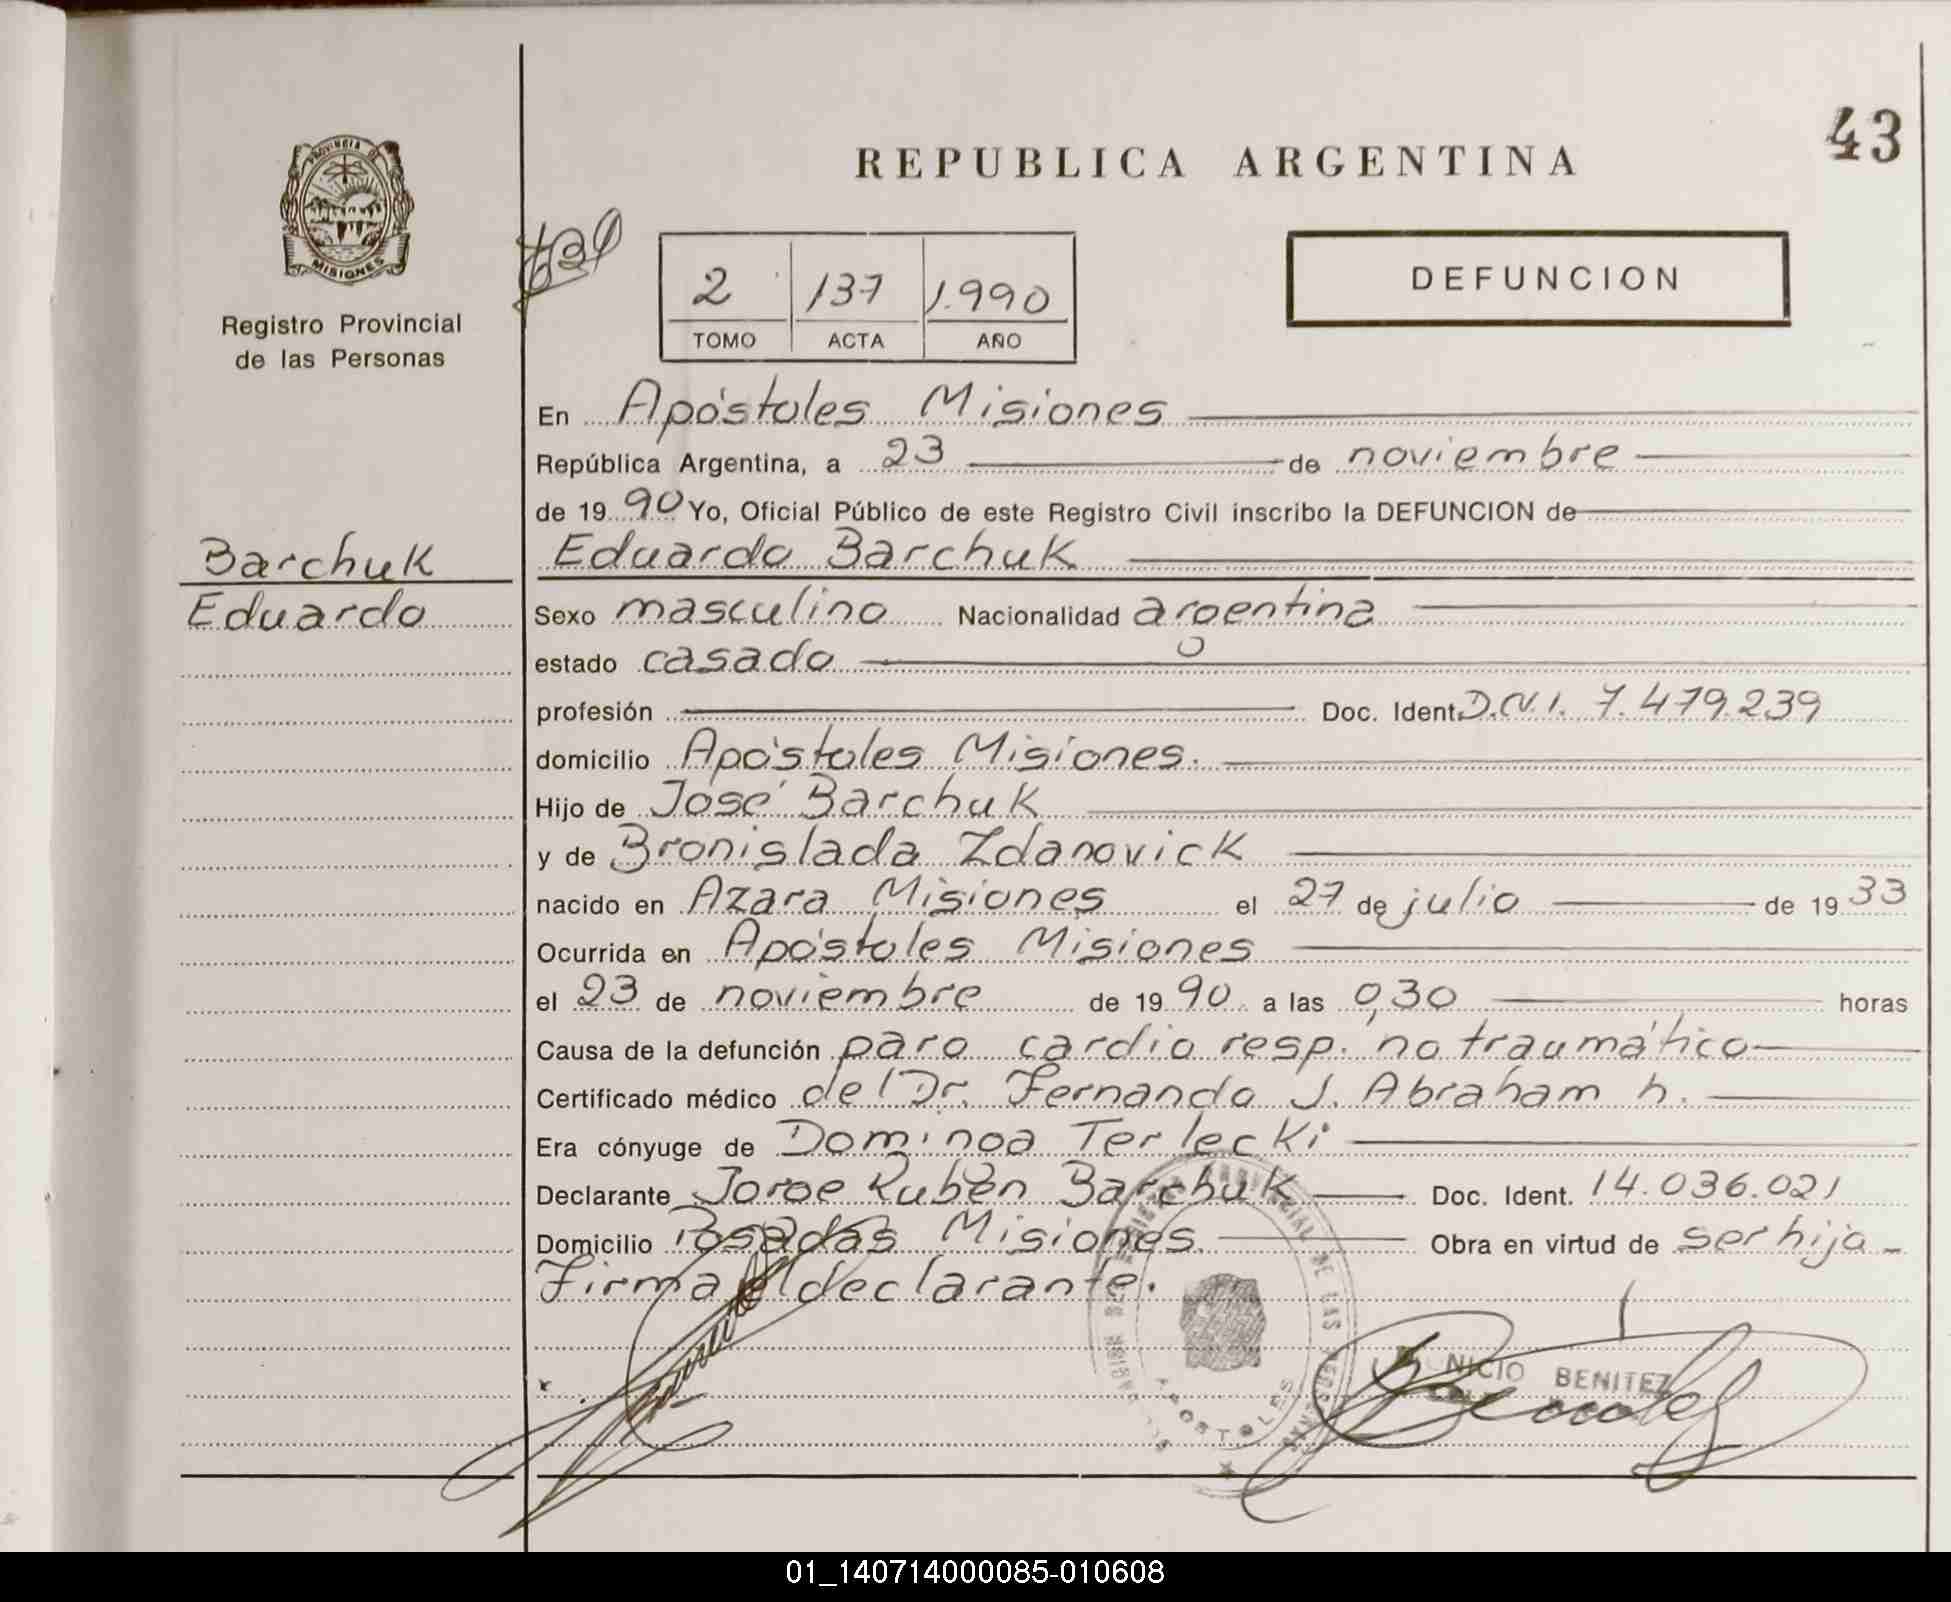 43
REPUBLICA ARGENTINA
PROVINCIA DE
MISIONES
Registro Provincial
de las Personas
2 137 1.990
TOMO ACTA AÑO
DEFUNCION
En Apóstoles Misiones
República Argentina, a 23 de noviembre
de 1990 Yo, Oficial Público de este Registro Civil inscribo la DEFUNCION de
Barchuk
Eduardo
Eduardo Barchuk
Sexo masculino Nacionalidad argentina
estado casado
profesión Doc. Ident. D.N.I. 7.479.239
domicilio Apóstoles Misiones.
Hijo de José Barchuk
y de Bronislada Zdanovick
nacido en Azara Misiones el 27 de julio de 1933
Ocurrida en Apóstoles Misiones
el 23 de noviembre de 1990 a las 0,30 horas
Causa de la defunción paro cardio resp. no traumático
Certificado médico del Dr. Fernando J. Abraham h.
Era cónyuge de Dominga Terlecki
Declarante Jorge Rubén Barchuk Doc. Ident. 14.036.021
Domicilio Posadas Misiones. Obra en virtud de ser hijo
Firma el declarante.
PROVINCIAL DE LAS PERSONAS
APOSTOLES
BENITEZ
01_140714000085-010608